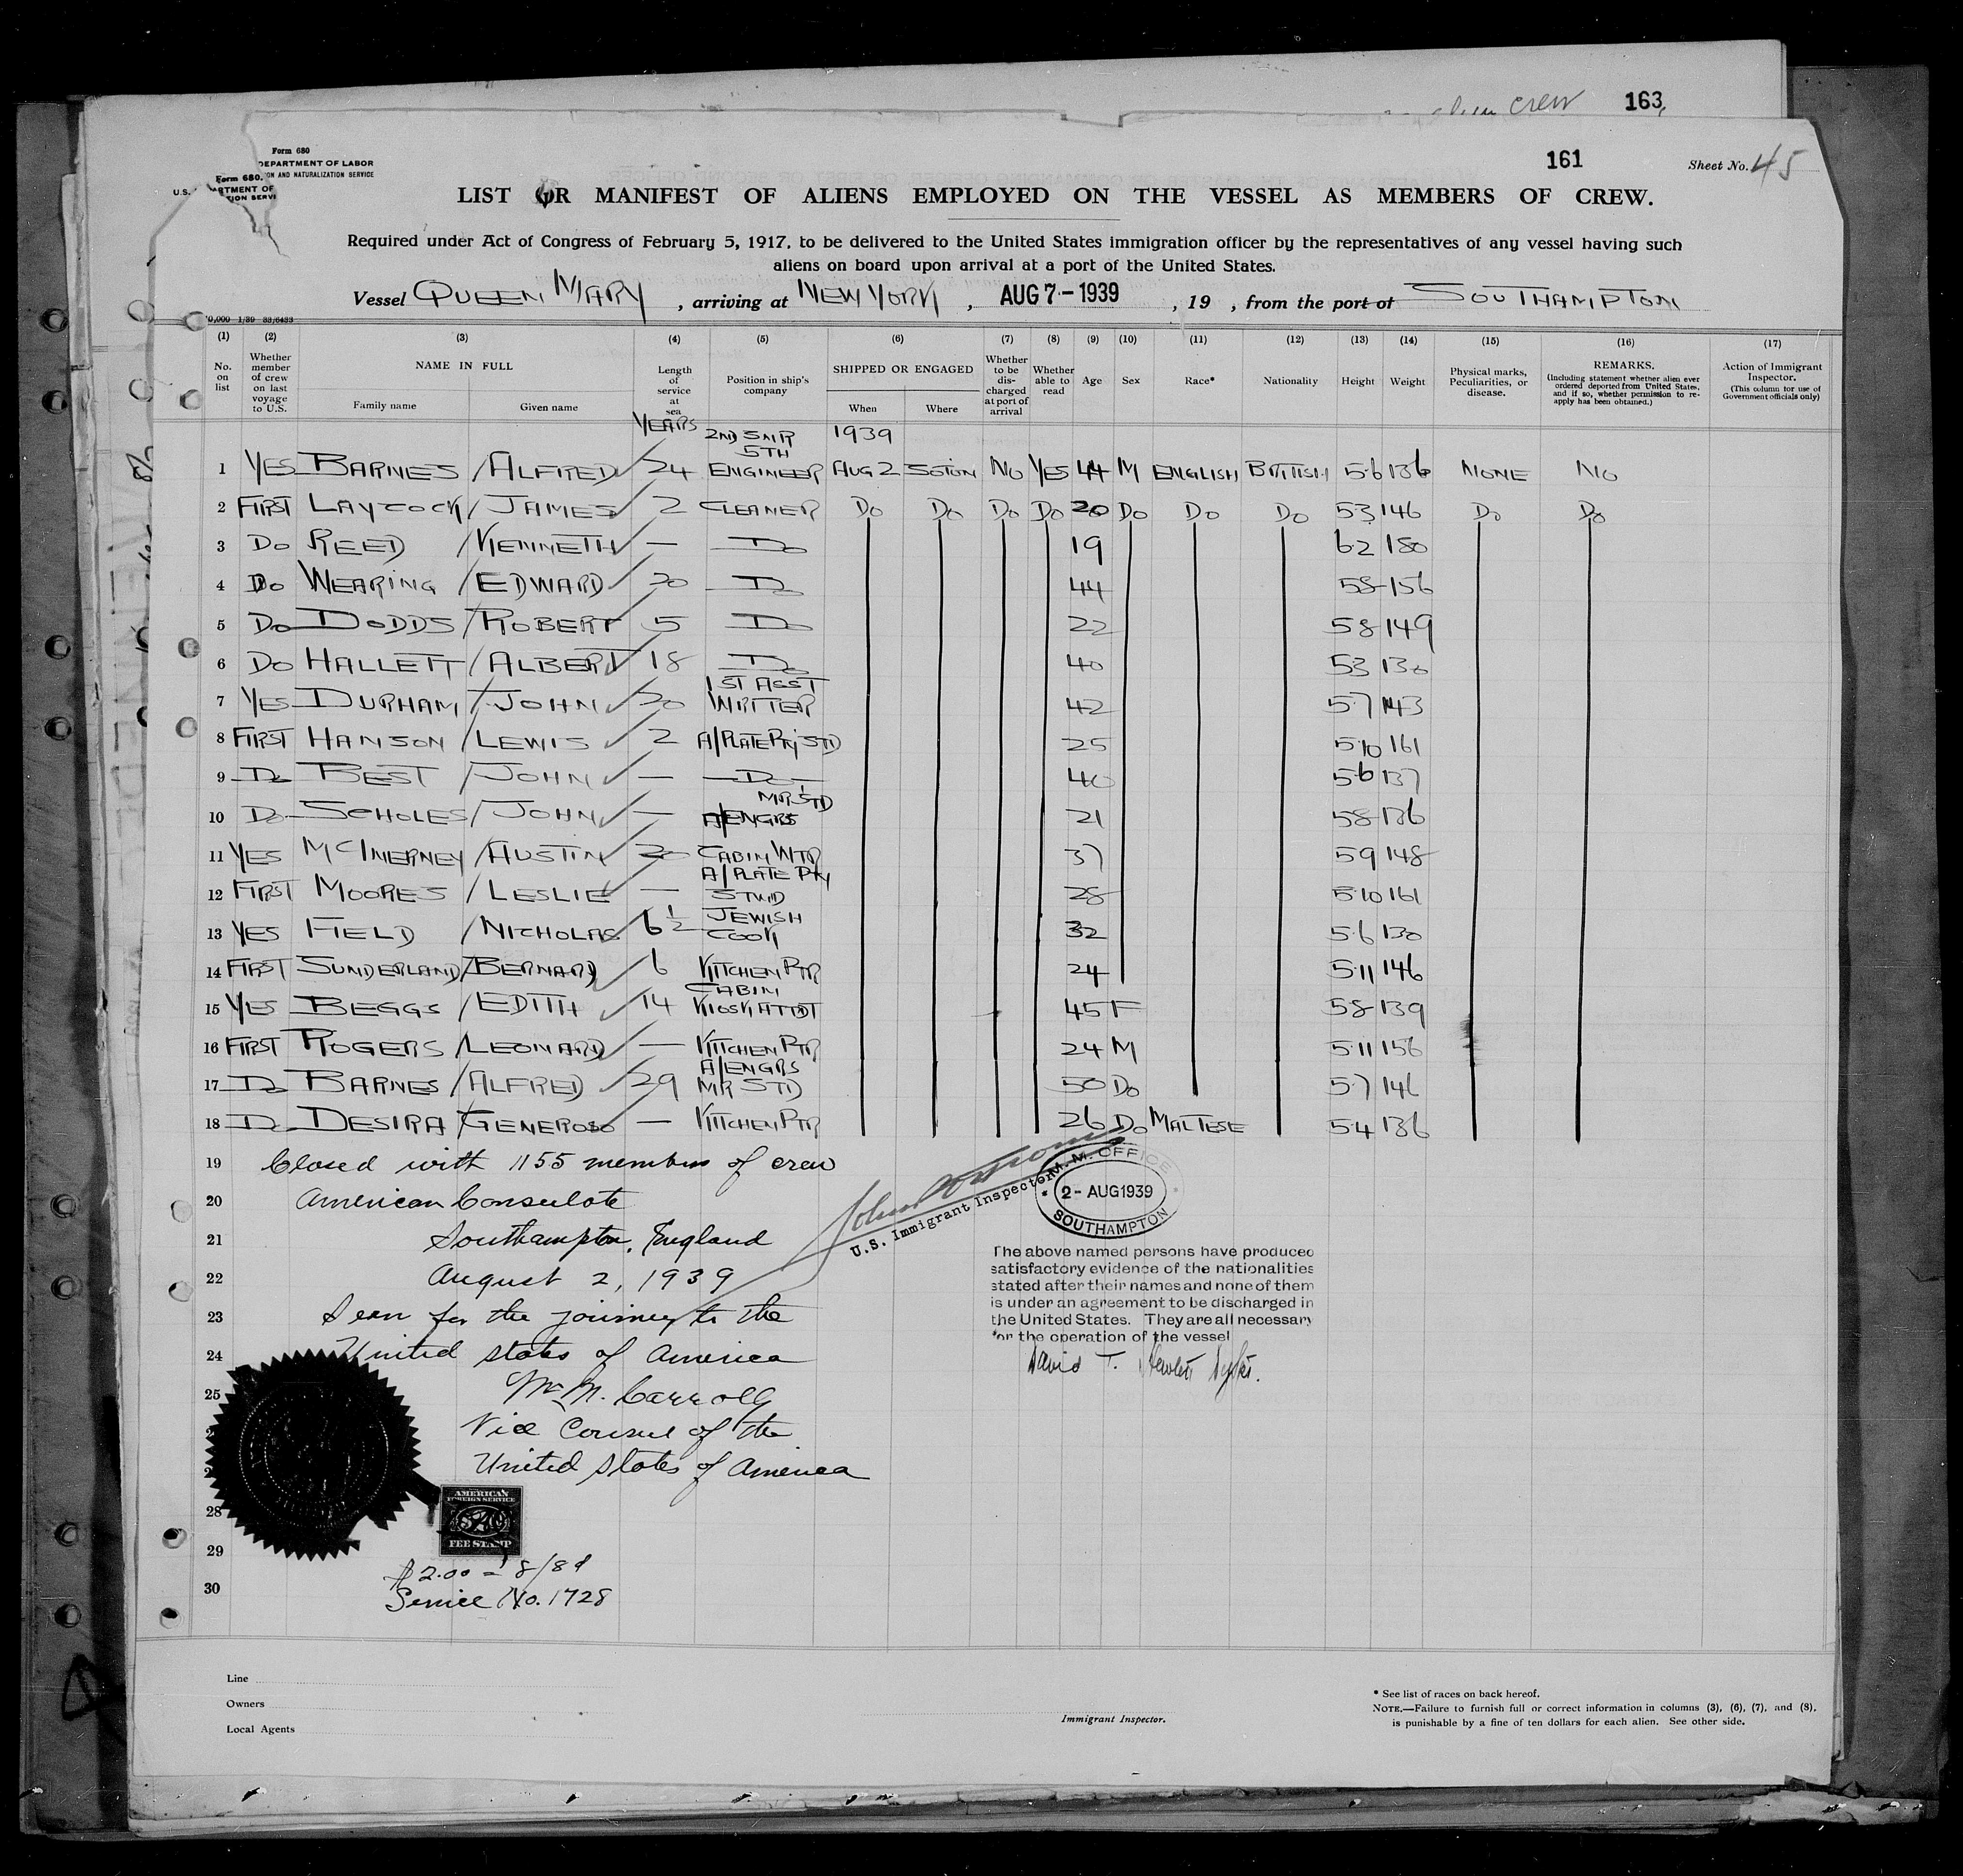 crew 163
Form 680
DEPARTMENT OF LABOR
ON AND NATURALIZATION SERVICE
Form 680.
U.S.
ARTMENT OF
TION SERVI
161
Sheet No. 45
LIST OR MANIFEST OF ALIENS EMPLOYED ON THE VESSEL AS MEMBERS OF CREW.
Required under Act of Congress of February 5, 1917, to be delivered to the United States immigration officer by the representatives of any vessel having such
aliens on board upon arrival at a port of the United States.
Vessel QUEEN MARY, arriving at NEW YORK, AUG 7-1939, 19 , from the port of SOUTHAMPTON
0,000 1/39 33/6433
(1) (2) (3) (4) (5) (6) (7) (8) (9) (10) (11) (12) (13) (14) (15) (16) (17)
No. on list
Whether member of crew on last voyage to U.S.
NAME IN FULL
Family name Given name
Length of service at sea
Position in ship's company
SHIPPED OR ENGAGED
When Where
Whether to be discharged at port of arrival
Whether able to read
Age
Sex
Race*
Nationality
Height
Weight
Physical marks, Peculiarities, or disease.
REMARKS.
(Including statement whether alien ever ordered deported from United States, and if so, whether permission to re-apply has been obtained.)
Action of Immigrant Inspector.
(This column for use of Government officials only)
YEARS 2ND SNR 1939
5TH
1 YES BARNES / ALFRED 24 ENGINEER AUG 2 SOTON NO YES 44 M ENGLISH BRITISH 5·6 136 NONE NO
2 FIRST LAYCOCK / JAMES 2 CLEANER DO DO DO DO 20 DO DO DO 5·3 146 DO DO
3 DO REED / KENNETH — DO 19 6·2 180
4 DO WEARING / EDWARD 20 DO 44 5·8 156
5 DO DODDS / ROBERT 5 DO 22 5·8 149
6 DO HALLETT / ALBERT 18 DO 40 5·3 130
1ST ASST
7 YES DURHAM / JOHN 20 WRITER 42 5·7 143
8 FIRST HANSON / LEWIS 2 A/PLATE PTY STD 25 5·10 161
9 DO BEST / JOHN — DO 40 5·6 137
MR STD
10 DO SCHOLES / JOHN — A/ENGRS 21 5·8 136
11 YES MCINERNEY / AUSTIN 20 CABIN WTR 37 5·9 148
A/PLATE PTY
12 FIRST MOORES / LESLIE — STWD 28 5·10 161
JEWISH
13 YES FIELD / NICHOLAS 6½ COOK 32 5·6 130
14 FIRST SUNDERLAND / BERNARD 6 KITCHEN PTR 24 5·11 146
CABIN
15 YES BEGGS / EDITH 14 KIOSK ATTDT 45 F 5·8 139
16 FIRST ROGERS / LEONARD — KITCHEN PTR 24 M 5·11 156
A/ENGRS
17 DO BARNES / ALFRED 29 MR STD 50 DO 5·7 146
18 DO DESIRA / GENEROSO — KITCHEN PTR 26 DO MALTESE 5·4 136
19 Closed with 1155 members of crew
20 American Consulate
21 Southampton, England
22 August 2, 1939
23 Seen for the journey to the
24 United States of America
25 M. Carroll
Vice Consul of the
United States of America
28
29
30
John
U.S. Immigrant Inspector
M.M. OFFICE
2- AUG 1939
SOUTHAMPTON
The above named persons have produced
satisfactory evidence of the nationalities
stated after their names and none of them
is under an agreement to be discharged in
the United States. They are all necessary
for the operation of the vessel
David T.
AMERICAN
FOREIGN SERVICE
FEE STAMP
$2.00 = 8/8d
Service No. 1728
Line
Owners
Local Agents
Immigrant Inspector.
* See list of races on back hereof.
NOTE.—Failure to furnish full or correct information in columns (3), (6), (7), and (8),
is punishable by a fine of ten dollars for each alien. See other side.